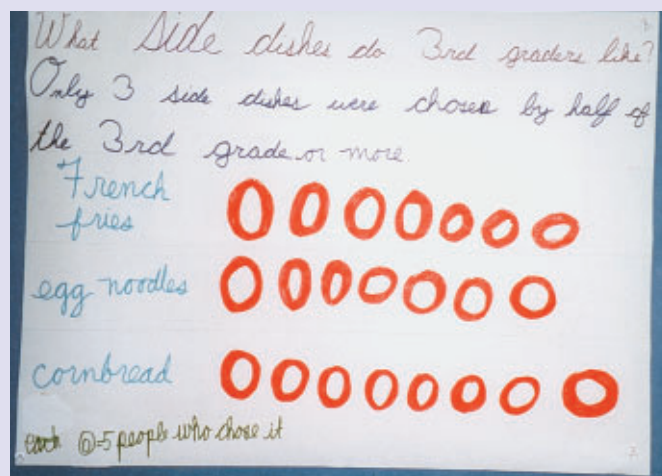 What Side dishes do 3rd graders like?
Only 3 side dishes were chosen by half of
the 3rd grade or more.
French
fries
egg noodles
cornbread
each O=5 people who chose it